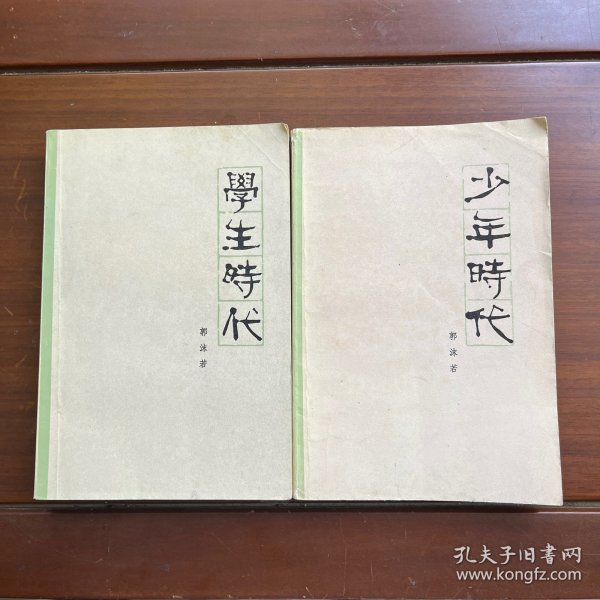 學生時代
郭沫若
少年時代
郭沫若
孔夫子旧書网
www.kongfz.com